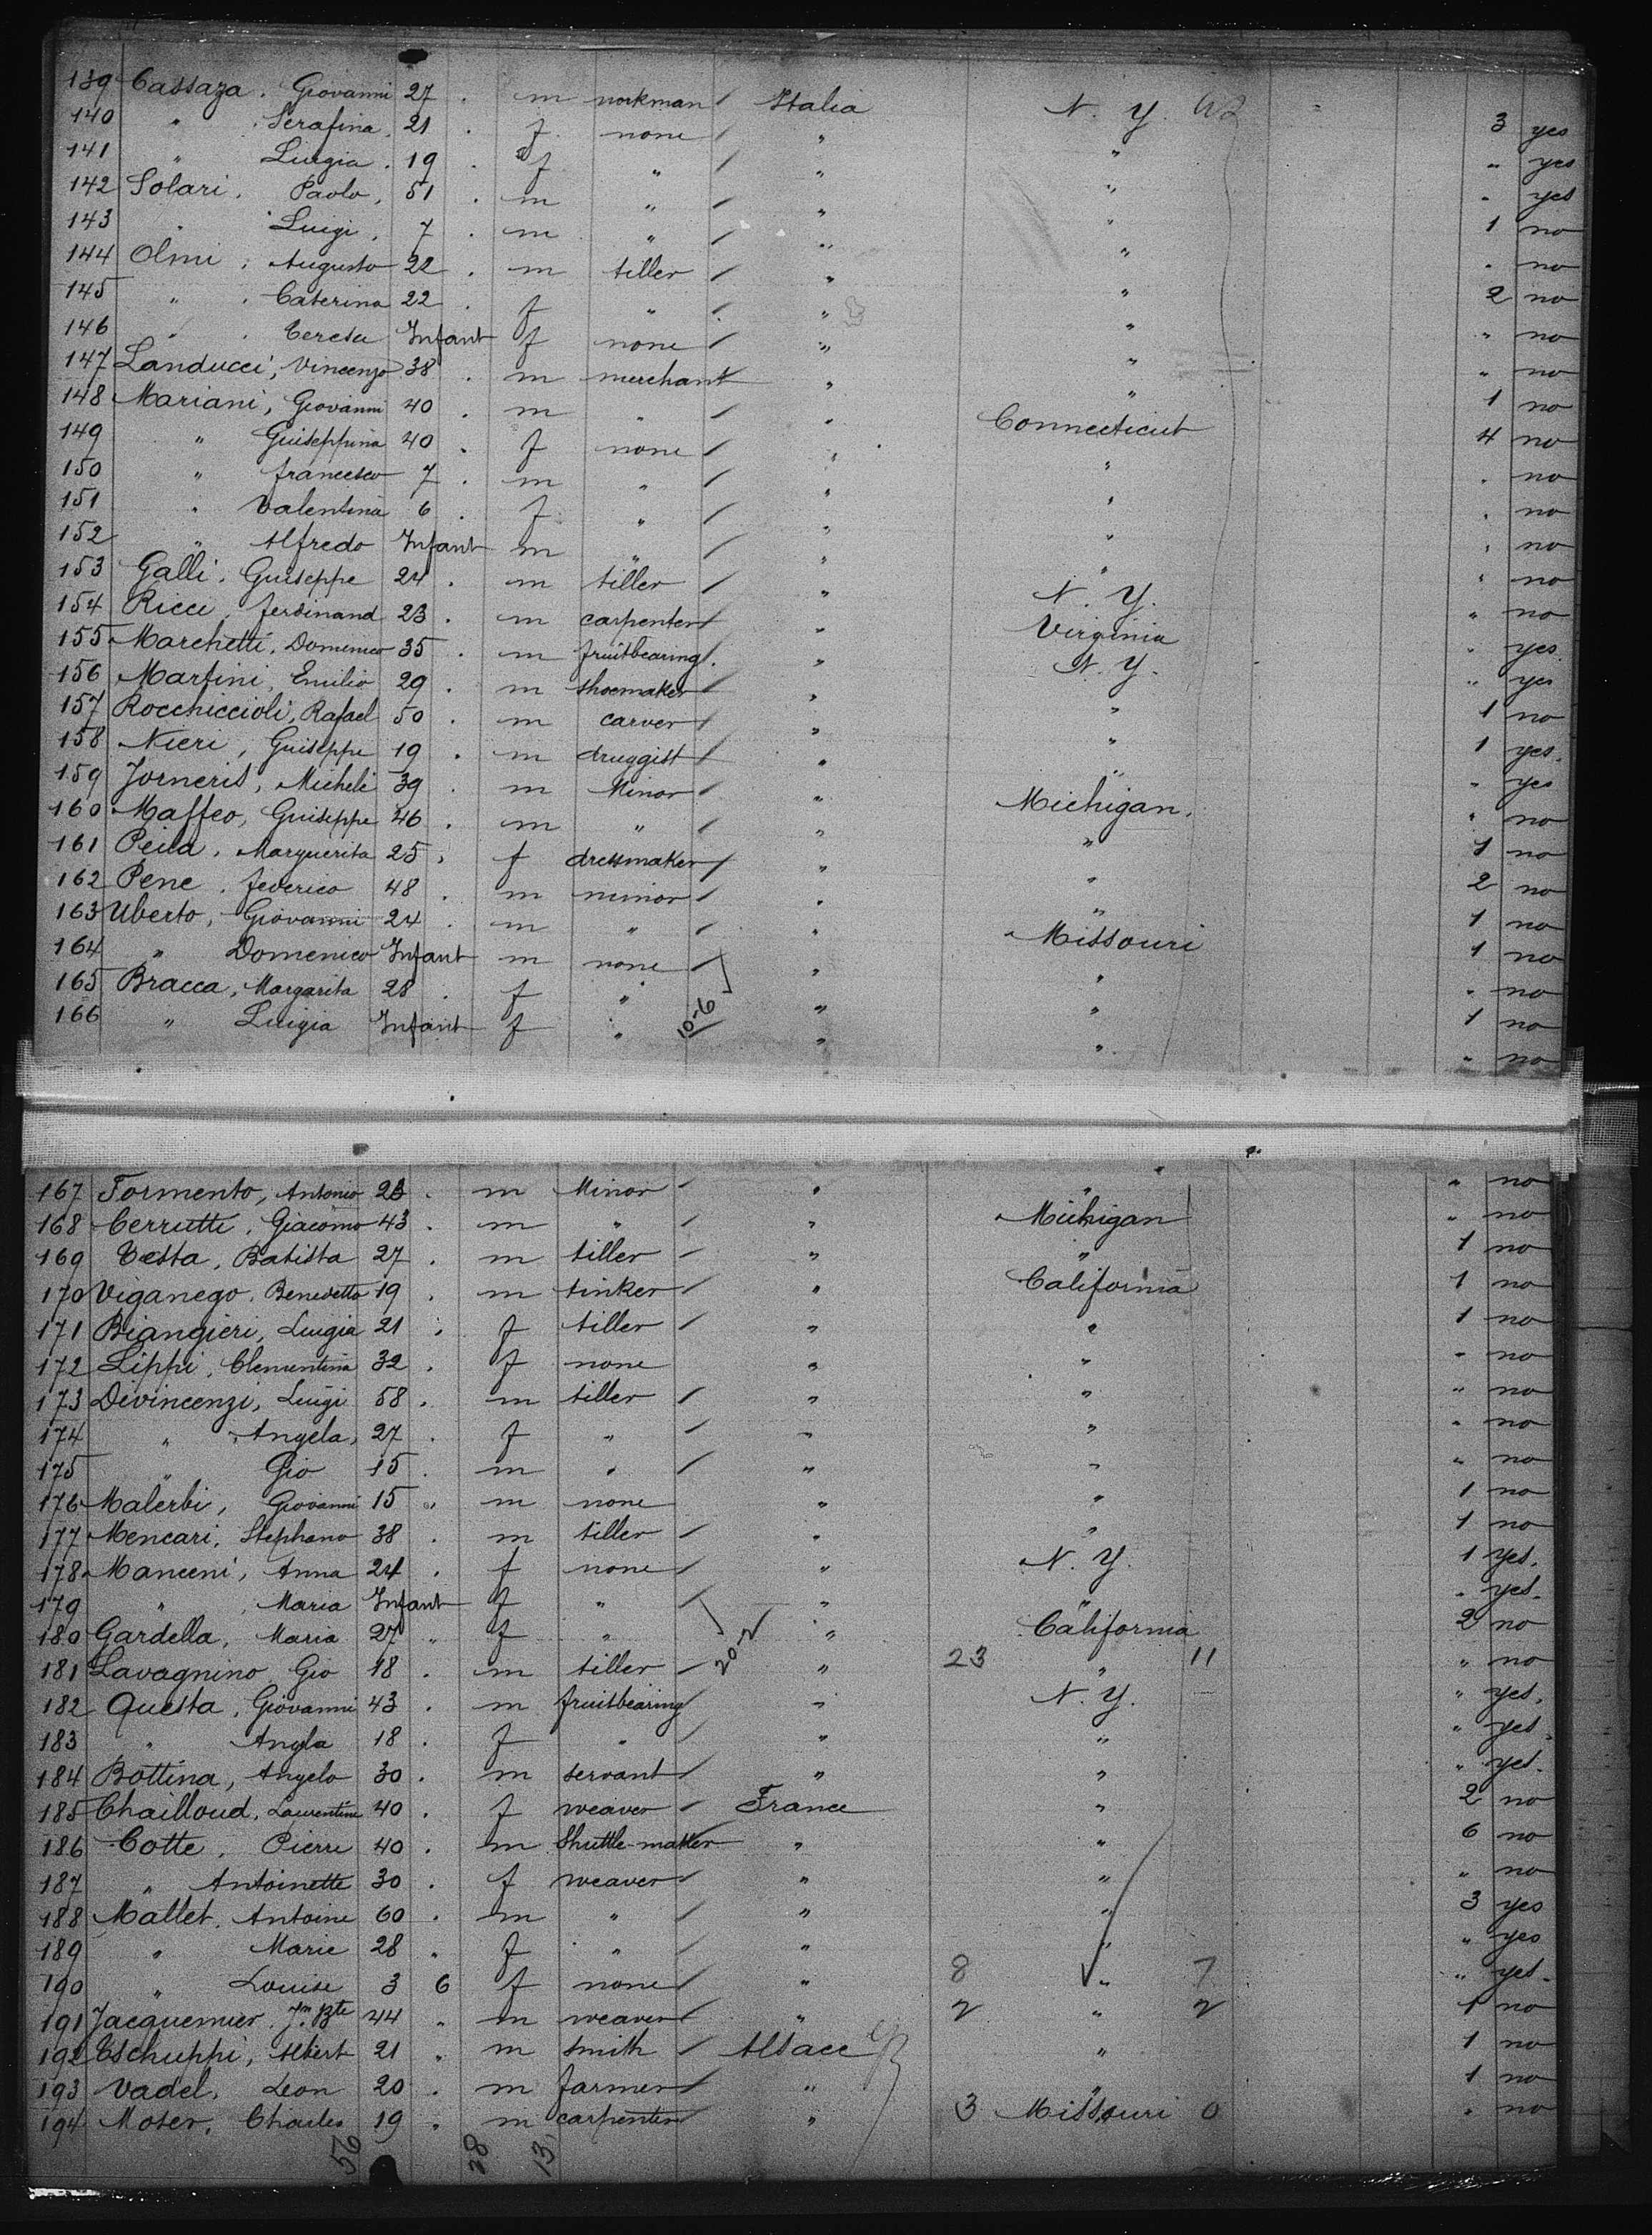 139 Cassaza, Giovanni 27 . m workman / Italia N. Y. 3 yes
140 " Serafina, 21 . f none / " " " yes
141 " Luigia . 19 . f " / " " " yes
142 Solari, Paolo, 51 . m " / " " 1 no
143 " Luigi, 7 . m " / " " " no
144 Olmi, Augusto 22 . m tiller / " " 2 no
145 " Caterina 22 . f " " " " no
146 " Teresa Infant f none / " " " no
147 Landucci, Vincenzo 38 . m merchant " " 1 no
148 Mariani, Giovanni 40 . m " / " Connecticut 4 no
149 " Guiseppina 40 . f none / " " " no
150 " Francesco 7 . m " / " " " no
151 " Valentina 6 . f " / " " " no
152 " Alfredo Infant m " / " " " no
153 Galli, Guiseppe 24 . m tiller / " N. Y. " no
154 Ricci, Ferdinand 23 . m carpenter / " Virginia " yes
155 Marchetti, Domenico 35 . m fruitbearing / " N. Y. " yes
156 Martini, Emilio 29 . m shoemaker / " " 1 no
157 Rocchiccioli, Rafael 50 . m carver / " " 1 yes.
158 Nieri, Guiseppe 19 . m druggist / " " " yes
159 Jorneris, Michele 39 . m Minor / " Michigan. " no
160 Maffeo, Guiseppe 46 . m " / " " 1 no
161 Peila, Marguerita 25 . f dressmaker / " " 2 no
162 Pene, Feverico 48 . m minor / " " 1 no
163 Uberto, Giovanni 24 . m " / " Missouri 1 no
164 " Domenico Infant m none / " " " no
165 Bracca, Margarita 28 . f " " " 1 no
166 " Luigia Infant f " 10-6 / " " " no
167 Formento, Antonio . m Minor / " " " no
168 Cerrutti, Giacomo 43 . m " / " Michigan " no
169 Testa, Batista 27 . m tiller / " " 1 no
170 Viganego, Benedetto 19 . m tinker / " California 1 no
171 Biangieri, Luigia 21 . f tiller / " " 1 no
172 Lippi, Clementina 32 . f none " " " no
173 Divincenzi, Luigi 58 . m tiller / " " " no
174 " Angela, 27 . f " / " " " no
175 " Gio 15 . m " / " " " no
176 Malerbi, Giovanni 15 " m none " " 1 no
177 Mencari, Stephano 38 . m tiller / " " 1 no
178 Manceni, Anna 24 . f none / " N. Y. 1 yes.
179 " Maria Infant f " / " " " yes.
180 Gardella, Maria 27 " f " 20-2 " California 2 no
181 Lavagnino Gio 18 . m tiller / " 23 " 11 " no
182 Questa, Giovanni 43 . m fruitbearing " N. Y. " yes.
183 " Angla 18 . f " / " " " yes.
184 Bottina, Angelo 30 . m servant / " " " yes.
185 Chailloud, Laurentine 40 . f weaver / France " 2 no
186 Cotte, Pierre 40 . m Shuttle-maker " " 6 no
187 " Antoinette 30 . f weaver / " " " no
188 Mallet, Antoine 60 . m " / " " 3 yes
189 " Marie 28 " f " / " " " yes
190 " Louise 3 6 f none / " 8 " 7 " yes.
191 Jacquemier. Jn Bte 44 " m weaver / " 2 " 2 1 no
192 Tschuppi, Albert 21 " m smith / Alsace " 1 no
193 Vadel, Leon 20 . m farmer / " " 1 no
194 Moser, Charles 19 " m carpenter / " 3 Missouri 0 " no
56 28 13